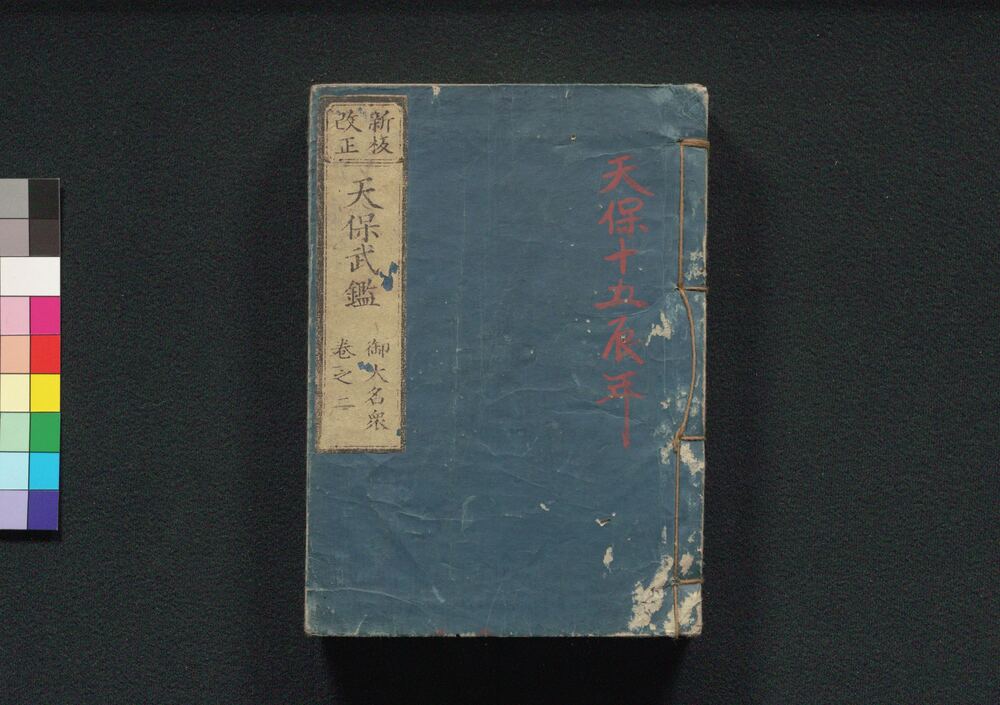 天保十五辰年
新板
改正
天保武鑑
御大名衆
巻之二